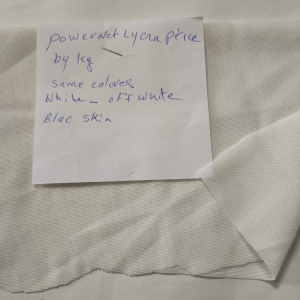 powerNet Lycra price
by kg
same colores
White _ off white
Blac skin